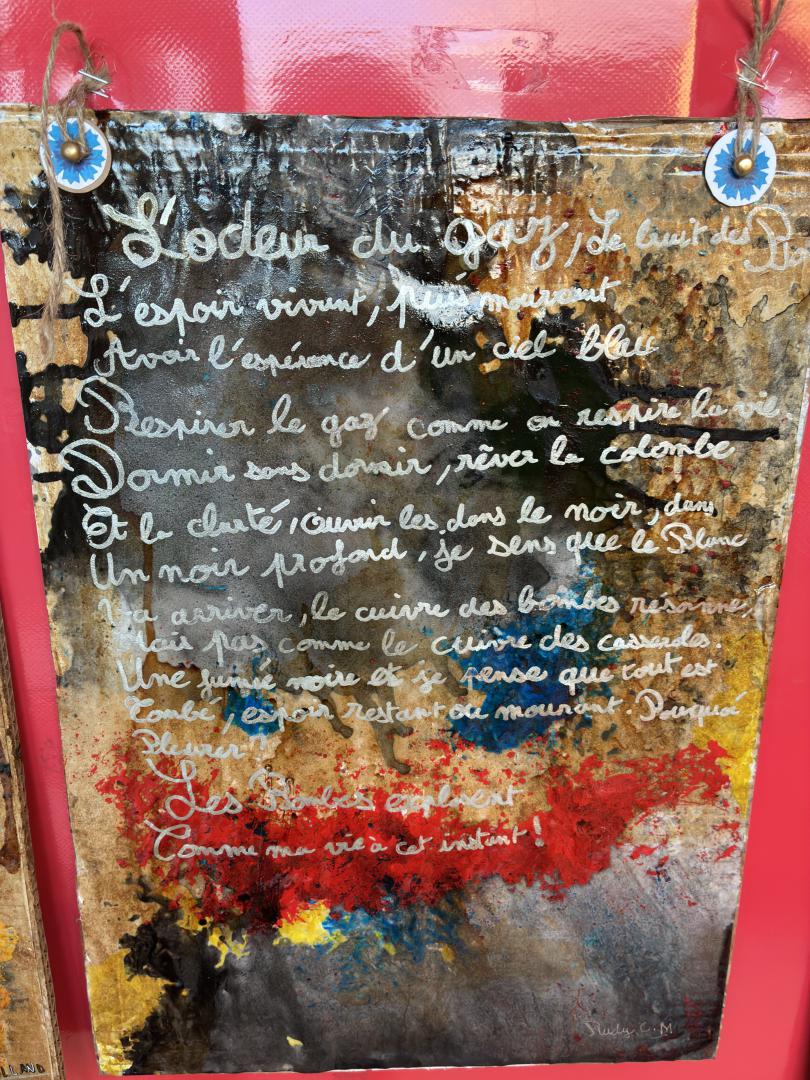 L'odeur du gaz, Le bruit des
L'espoir vivant, puis mourrant
Avoir l'espérance d'un ciel bleu
Respirer le gaz comme on respire la vie,
Dormir sans dormir, rêver la colombe
Et la clarté, ouvrir les dans le noir, dans
Un noir profond, je sens que le Blanc
Va arriver, le cuivre des bombes résonne,
Mais pas comme le cuivre des casseroles.
Une fumée noire et je pense que tout est
Tombé, espoir restant ou mourant. Pourquoi
Pleurer?
Les Bombes explosent
Comme ma vie à cet instant!
C.M
LLAND